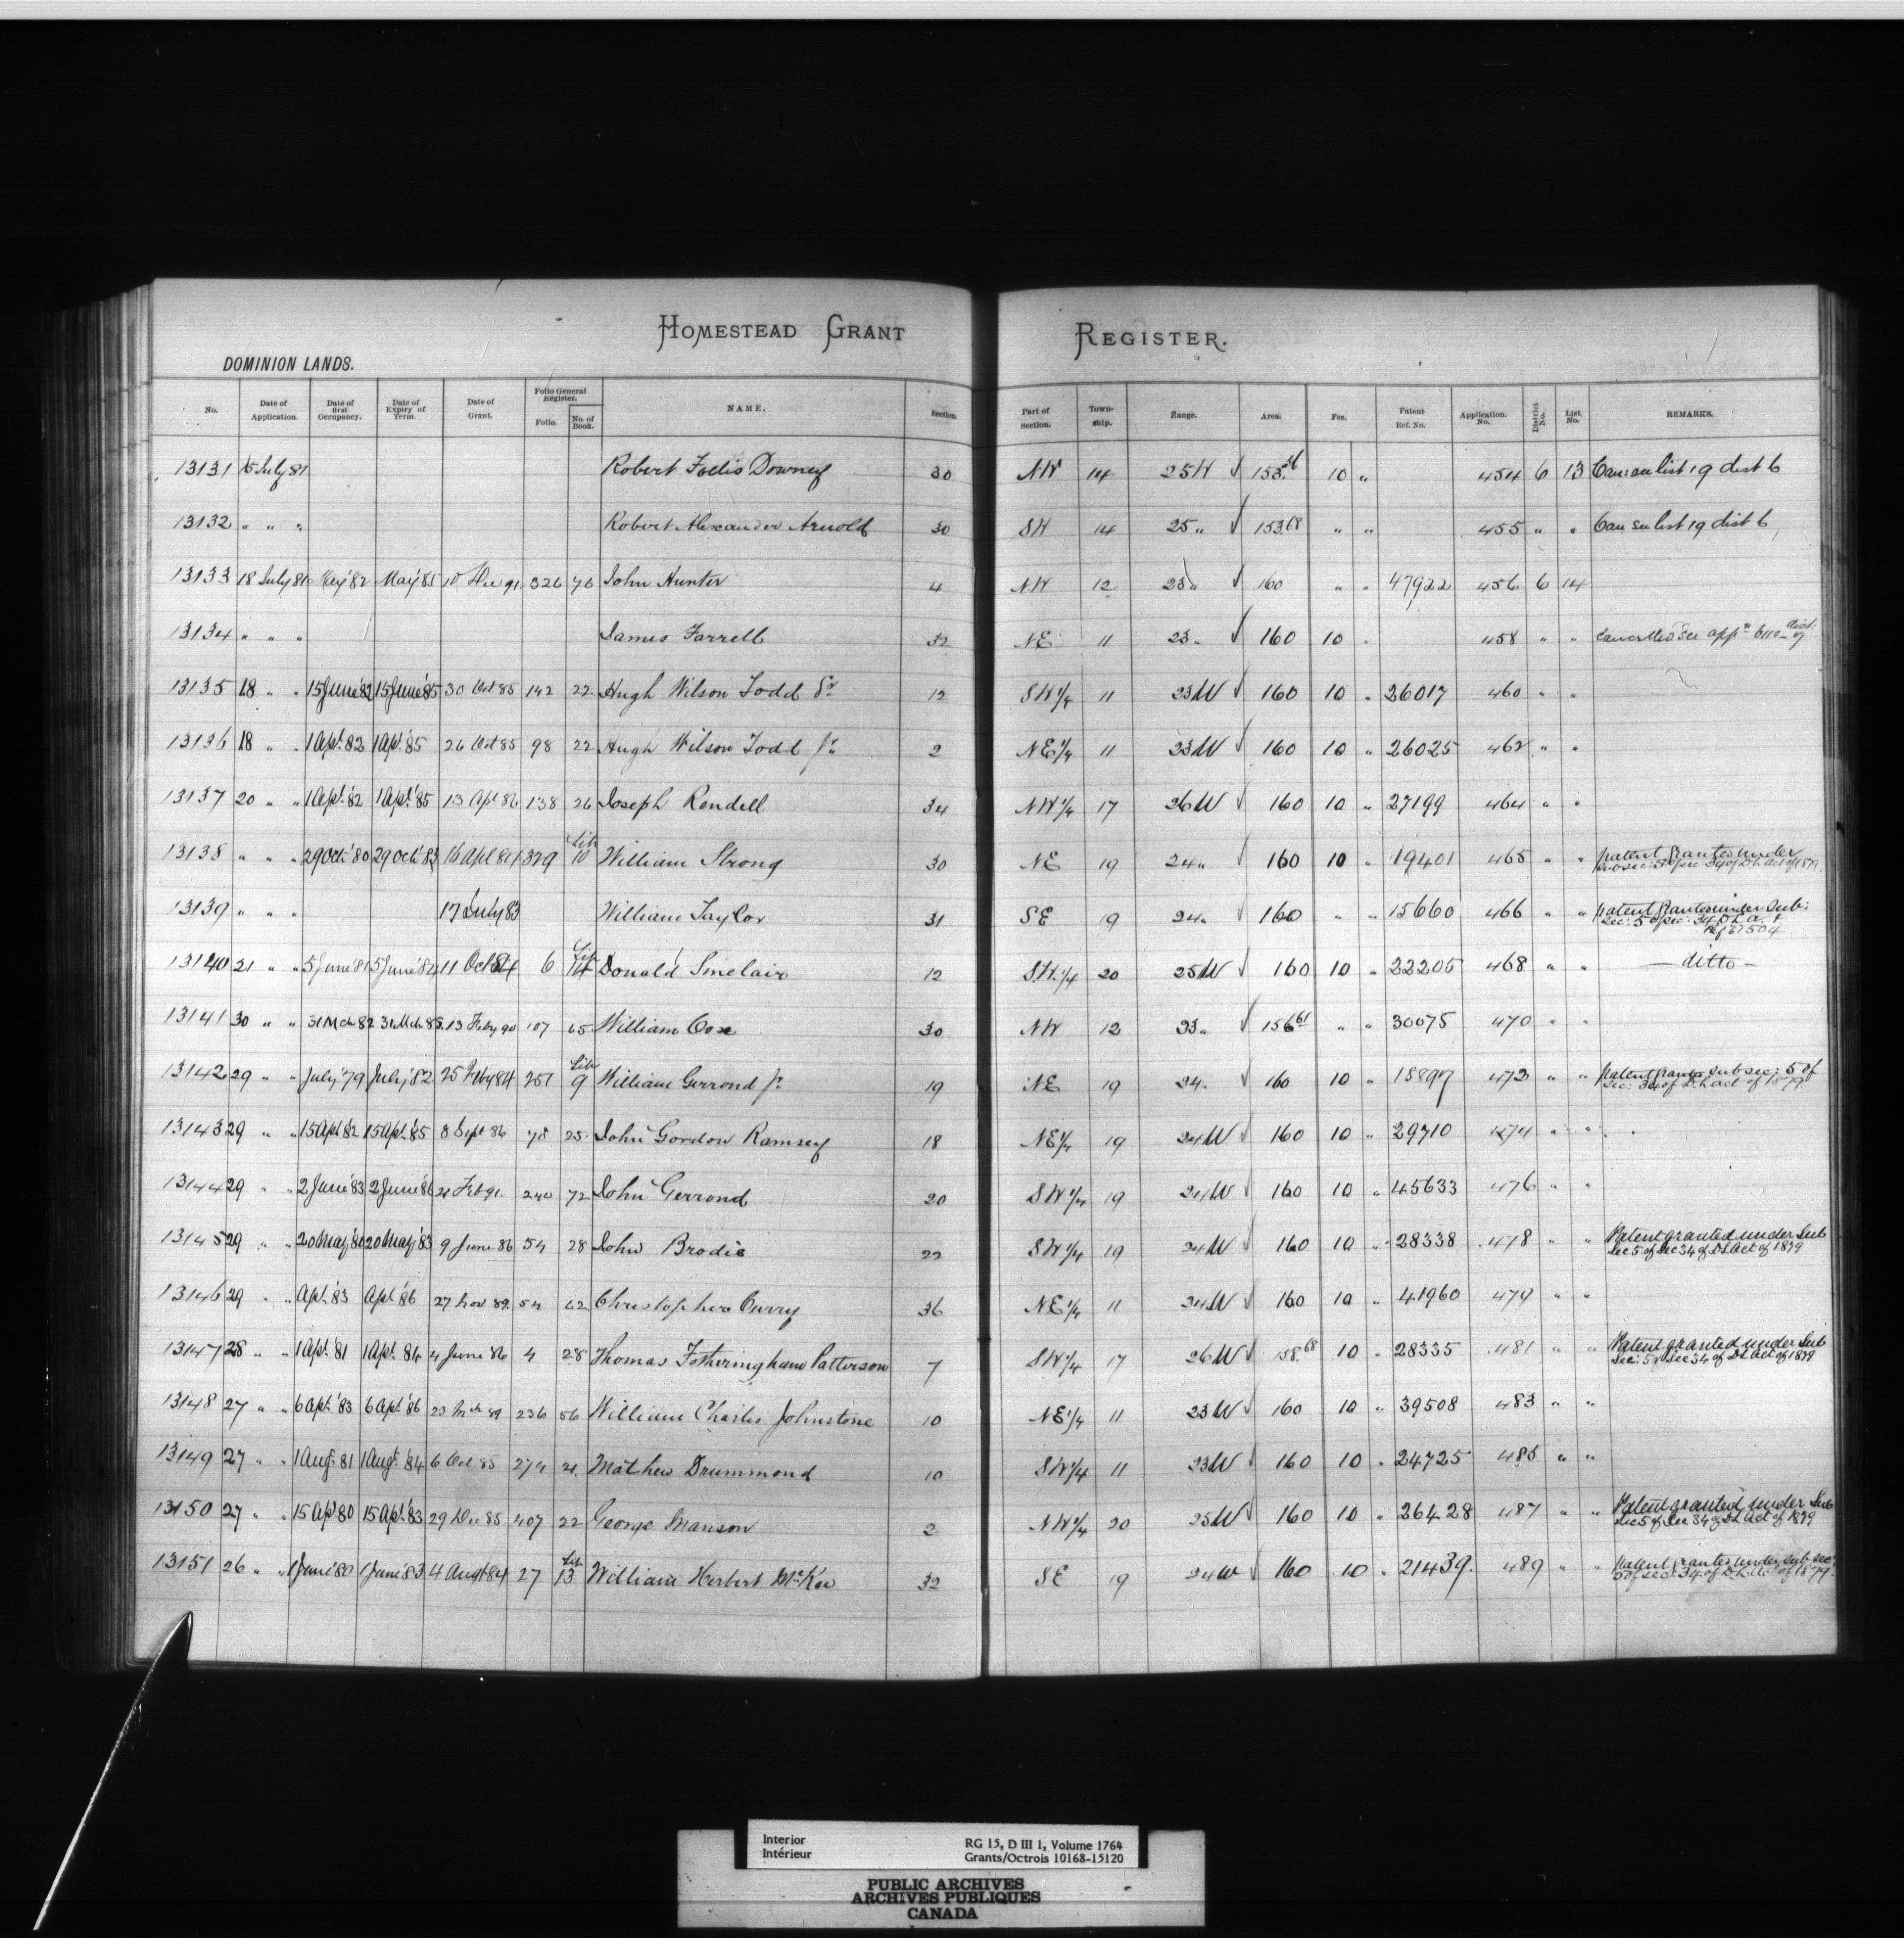 HOMESTEAD GRANT REGISTER.
DOMINION LANDS.
No. Date of Application. Date of first Occupancy. Date of Expiry of Term. Date of Grant. Folio General Register. Folio. No. of Book. NAME. Section. Part of Section. Town-ship. Range. Area. Fee. Patent Ref. No. Application No. District No. List No. REMARKS.
13131 15 July 81 Robert Follis Downey 30 NW 14 25W √ 153.36 10 „ 454 6 13 Can: see list 19 dist 6
13132 „ „ „ Robert Alexander Arnold 30 SW 14 25 „ √ 153.68 „ „ 455 „ „ Can see list 19 dist 6
13133 18 July 81 May '82 May '85 10 Dec 91 326 76 John Hunter 4 NW 12 23 „ √ 160 „ „ 47922 456 6 14
13134 „ „ „ James Farrell 32 NE 11 23 „ √ 160 10 „ 458 „ „ Cancelled see appn 6110 dist: 7
13135 18 „ „ 15 June '82 15 June '85 30 Oct 85 142 22 Hugh Wilson Todd Sr 12 SW 1/4 11 23W √ 160 10 „ 26017 460 „ „
13136 18 „ „ 1 Apl. 82 1 Apl. '85 26 Oct 85 98 22 Hugh Wilson Todd Jr 2 NE 1/4 11 23W √ 160 10 „ 26025 462 „ „
13137 20 „ „ 1 Apl. '82 1 Apl. '85 13 Apl 86 138 26 Joseph Rendell 34 NW 1/4 17 26W √ 160 10 „ 27199 464 „ „
13138 „ „ „ 29 Oct. '80 29 Oct. '83 16 Apl 84 329 Lib 10 William Strong 30 NE 19 24 „ √ 160 10 „ 19401 465 „ „ patent granted under
sub sec: 5 of sec 34 of D.L. act of 1879.
13139 „ „ „ 17 July 83 William Taylor 31 SE 19 24 „ √ 160 „ „ 15660 466 „ „ patent granted under sub:
sec: 5 of sec: 34 D L a. t
Ref 67504
13140 21 „ „ 5 June '81 5 June '84 11 Oct 84 6 Lib 14 Donald Sinclair 12 S.W. 1/4 20 25W √ 160 10 „ 22205 468 „ „ — ditto —
13141 30 „ „ 31 Mch 82 31 Mch 85 13 Feby 90 107 65 William Cox 30 NW 12 23 „ √ 156.61 „ „ 30075 470 „ „
13142 29 „ „ July '79 July '82 25 Feby 84 251 Lib 9 William Gerrond Jr 19 NE 19 24 „ 160 10 „ 18897 472 „ „ patent granted sub sec: 5 of
sec: 34 of D.L. act of 1879.
13143 29 „ „ 15 Apl 82 15 Apl. 85 8 Sept 86 78 25 John Gordon Ramsey 18 NE 1/4 19 24W √ 160 10 „ 29710 474 „ „
13144 29 „ „ 2 June '83 2 June '86 21 Feb 91 240 72 John Gerrond 20 SW 1/4 19 24W √ 160 10 „ 45633 476 „ „
13145 29 „ „ 20 May '80 20 May '83 9 June 86 54 28 John Brodie 22 SW 1/4 19 24W √ 160 10 „ 28338 478 „ „ Patent granted under Sub
Sec 5 of Sec 34 of D L Act of 1879
13146 29 „ „ Apl. 83 Apl '86 27 Nov 89 54 62 Christopher Curry 36 NE 1/4 11 24W √ 160 10 „ 41960 479 „ „
13147 28 „ „ 1 Apl. '81 1 Apl. 84 4 June 86 4 28 Thomas Fotheringham Patterson 7 SW 1/4 17 26W √ 158.68 10 „ 28335 481 „ „ Patent granted under Sub
Sec: 5 of Sec 34 of D L Act of 1879
13148 27 „ „ 6 Apl. '83 6 Apl. '86 23 Mch 89 236 56 William Charles Johnstone 10 NE 1/4 11 23W √ 160 10 „ 39508 483 „ „
13149 27 „ „ 1 Aug. 81 1 Aug. '84 6 Oct 85 274 21 Mathew Drummond 10 SW 1/4 11 23W √ 160 10 „ 24725 485 „ „
13150 27 „ „ 15 Apl 80 15 Apl. '83 29 Dec 85 407 22 George Manson 2 NW 1/4 20 25W √ 160 10 „ 26428 487 „ „ Patent granted under Sub
Sec 5 of Sec 34 of D L Act of 1879
13151 26 „ „ 1 June '80 1 June '83 4 Augt 84 27 Lib 13 William Herbert McKee 32 SE 19 24W √ 160 10 „ 21439 489 „ „ patent granted under sub sec:
5 of sec: 34 of D.L. Act of 1879.
Interior
Intérieur
RG 15, D III 1, Volume 1764
Grants/Octrois 10168-15120
PUBLIC ARCHIVES
ARCHIVES PUBLIQUES
CANADA